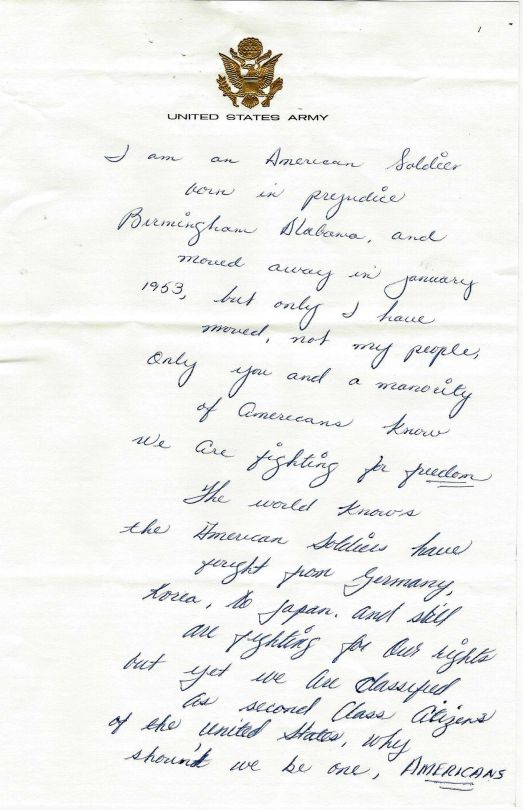 1
UNITED STATES ARMY
I am an American Soldier
born in prejudice
Birmingham Alabama, and
moved away in january
1953, but only I have
moved, not my people,
Only you and a manority
of Americans know
we are fighting for freedom
The world know's
the American Soldiers have
forght from Germany,
Korea, to Japan. and still
are fighting for Our rights
but yet we are classified
as second Class Citizens
of the united States, why
shoun't we be one, AMERICANS